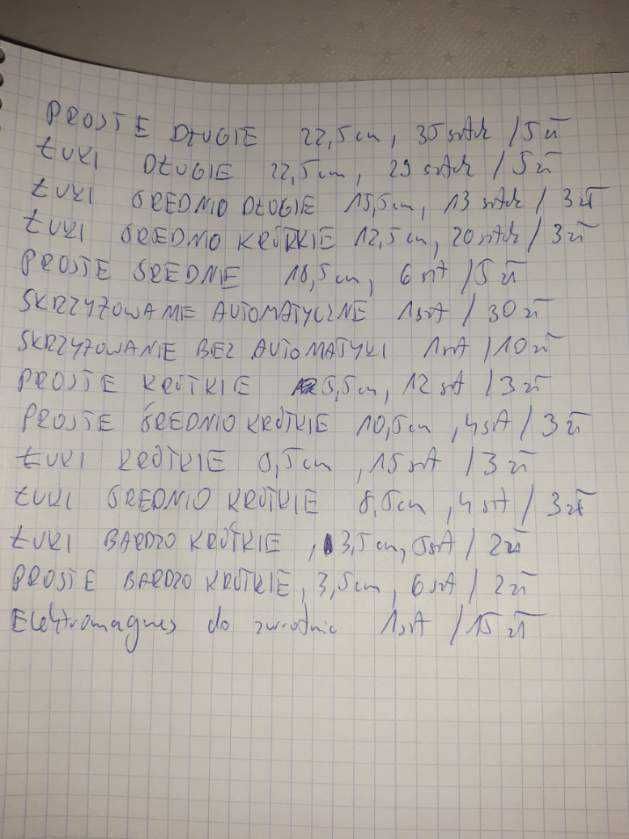 PROSTE DŁUGIE 22,5cm, 35 sztuk /5zł
ŁUKI DŁUGIE 22,5cm, 29 sztuk /5zł
ŁUKI ŚREDNIO DŁUGIE 15,5cm, 13 sztuk / 3zł
ŁUKI ŚREDNIO KRÓTKIE 12,5cm, 20 sztuk / 3zł
PROSTE ŚREDNIE 18,5cm, 6 szt /5zł
SKRZYŻOWANIE AUTOMATYCZNE 1szt / 30zł
SKRZYŻOWANIE BEZ AUTOMATYKI 1szt /10zł
PROSTE KRÓTKIE 5,5cm, 12szt / 3zł
PROSTE ŚREDNIO KRÓTKIE 10,5cm, 4szt / 3zł
ŁUKI KRÓTKIE ,5cm, 15szt / 3zł
ŁUKI ŚREDNIO KRÓTKIE 8,5cm, 4szt / 3zł
ŁUKI BARDZO KRÓTKIE, 3,5cm, / 2zł
PROSTE BARDZO KRÓTKIE, 3,5cm, 6szt / 2zł
Elektromagnes do zwrotnic 1szt / 15zł